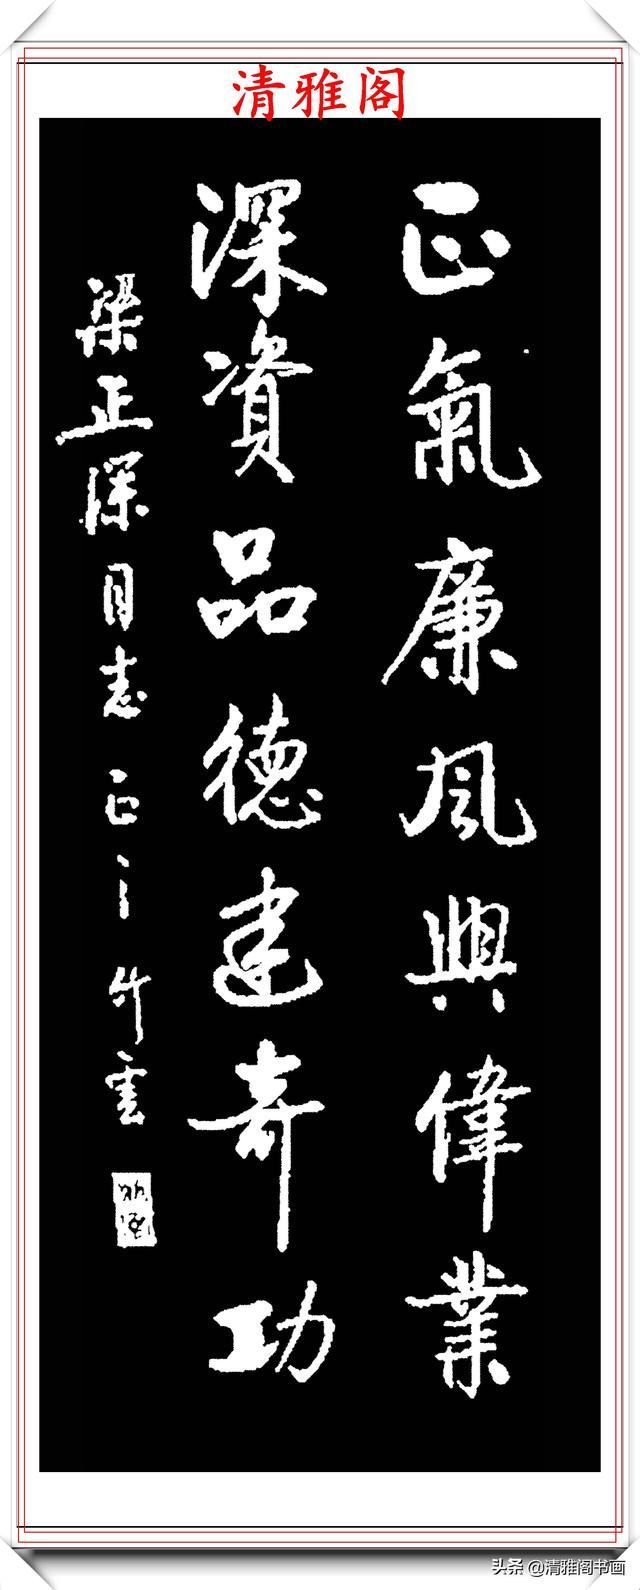 清雅阁
正氣廉風興偉業
深資品德建奇功
梁正深同志正之 竹雲
头条 @清雅阁书画